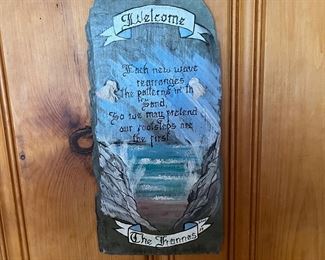 Welcome
Each new wave
rearranges
the patterns in th
Sand,
So we may pretend
our footsteps are
the first.
The